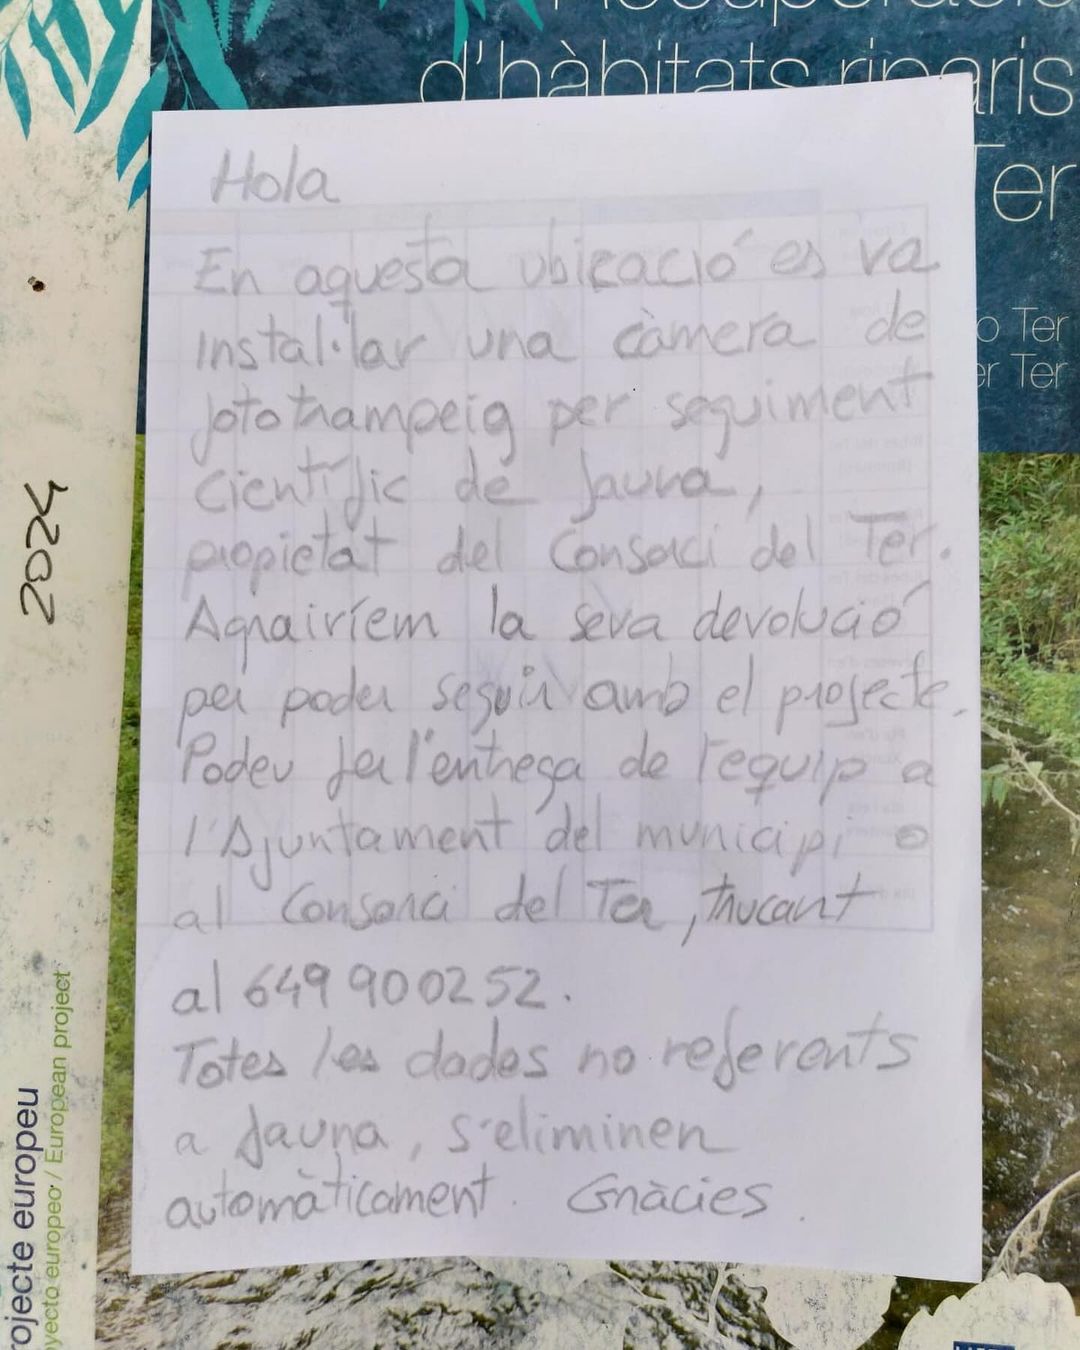 d'hàbitats riparis
Ter
o Ter
er Ter
Hola
En aquesta ubicació es va
instal·lar una càmera de
fototrampeig per seguiment
científic de fauna,
propietat del Consorci del Ter.
Agrairíem la seva devolució
per poder seguir amb el projecte.
Podeu fer l'entrega de l'equip a
l'Ajuntament del municipi o
al Consorci del Ter, trucant
al 649 900252.
Totes les dades no referents
a fauna, s'eliminen
automàticament. Gràcies.
2024
rojecte europeu
yecto europeo / European project